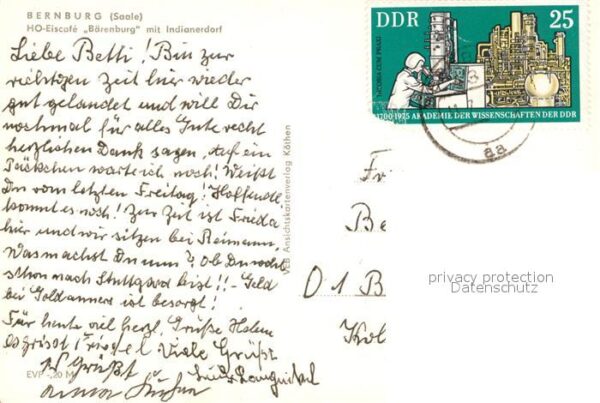 BERNBURG (Saale)
HO-Eiscafé „Bärenburg" mit Indianerdorf
Liebe Betti! Bin zur
richtigen Zeit hier wieder
gut gelandet und will Dir
nochmal für alles Gute recht
herzlichen Dank sagen, Auf ein
Päckchen warte ich noch! Weißt
Du vom letzten Freitag! Hoffentl.
kommt es noch! Zur Zeit ist Frieda
hier und wir sitzen bei Reimann.
Was machst Du nun? Ob Du wohl
schon nach bist!! - Geld
bei ist besorgt!
Für heute viel herzl. Grüße
Es grüsst Viele Grüße
Grüßt
EVP -,20 M
VEB Ansichtskartenverlag Köthen
DDR 25
1700-1975 AKADEMIE DER WISSENSCHAFTEN DER DDR
THEORIA CUM PRAXI
aa
Fr
Be
O 1 B
privacy protection
Datenschutz